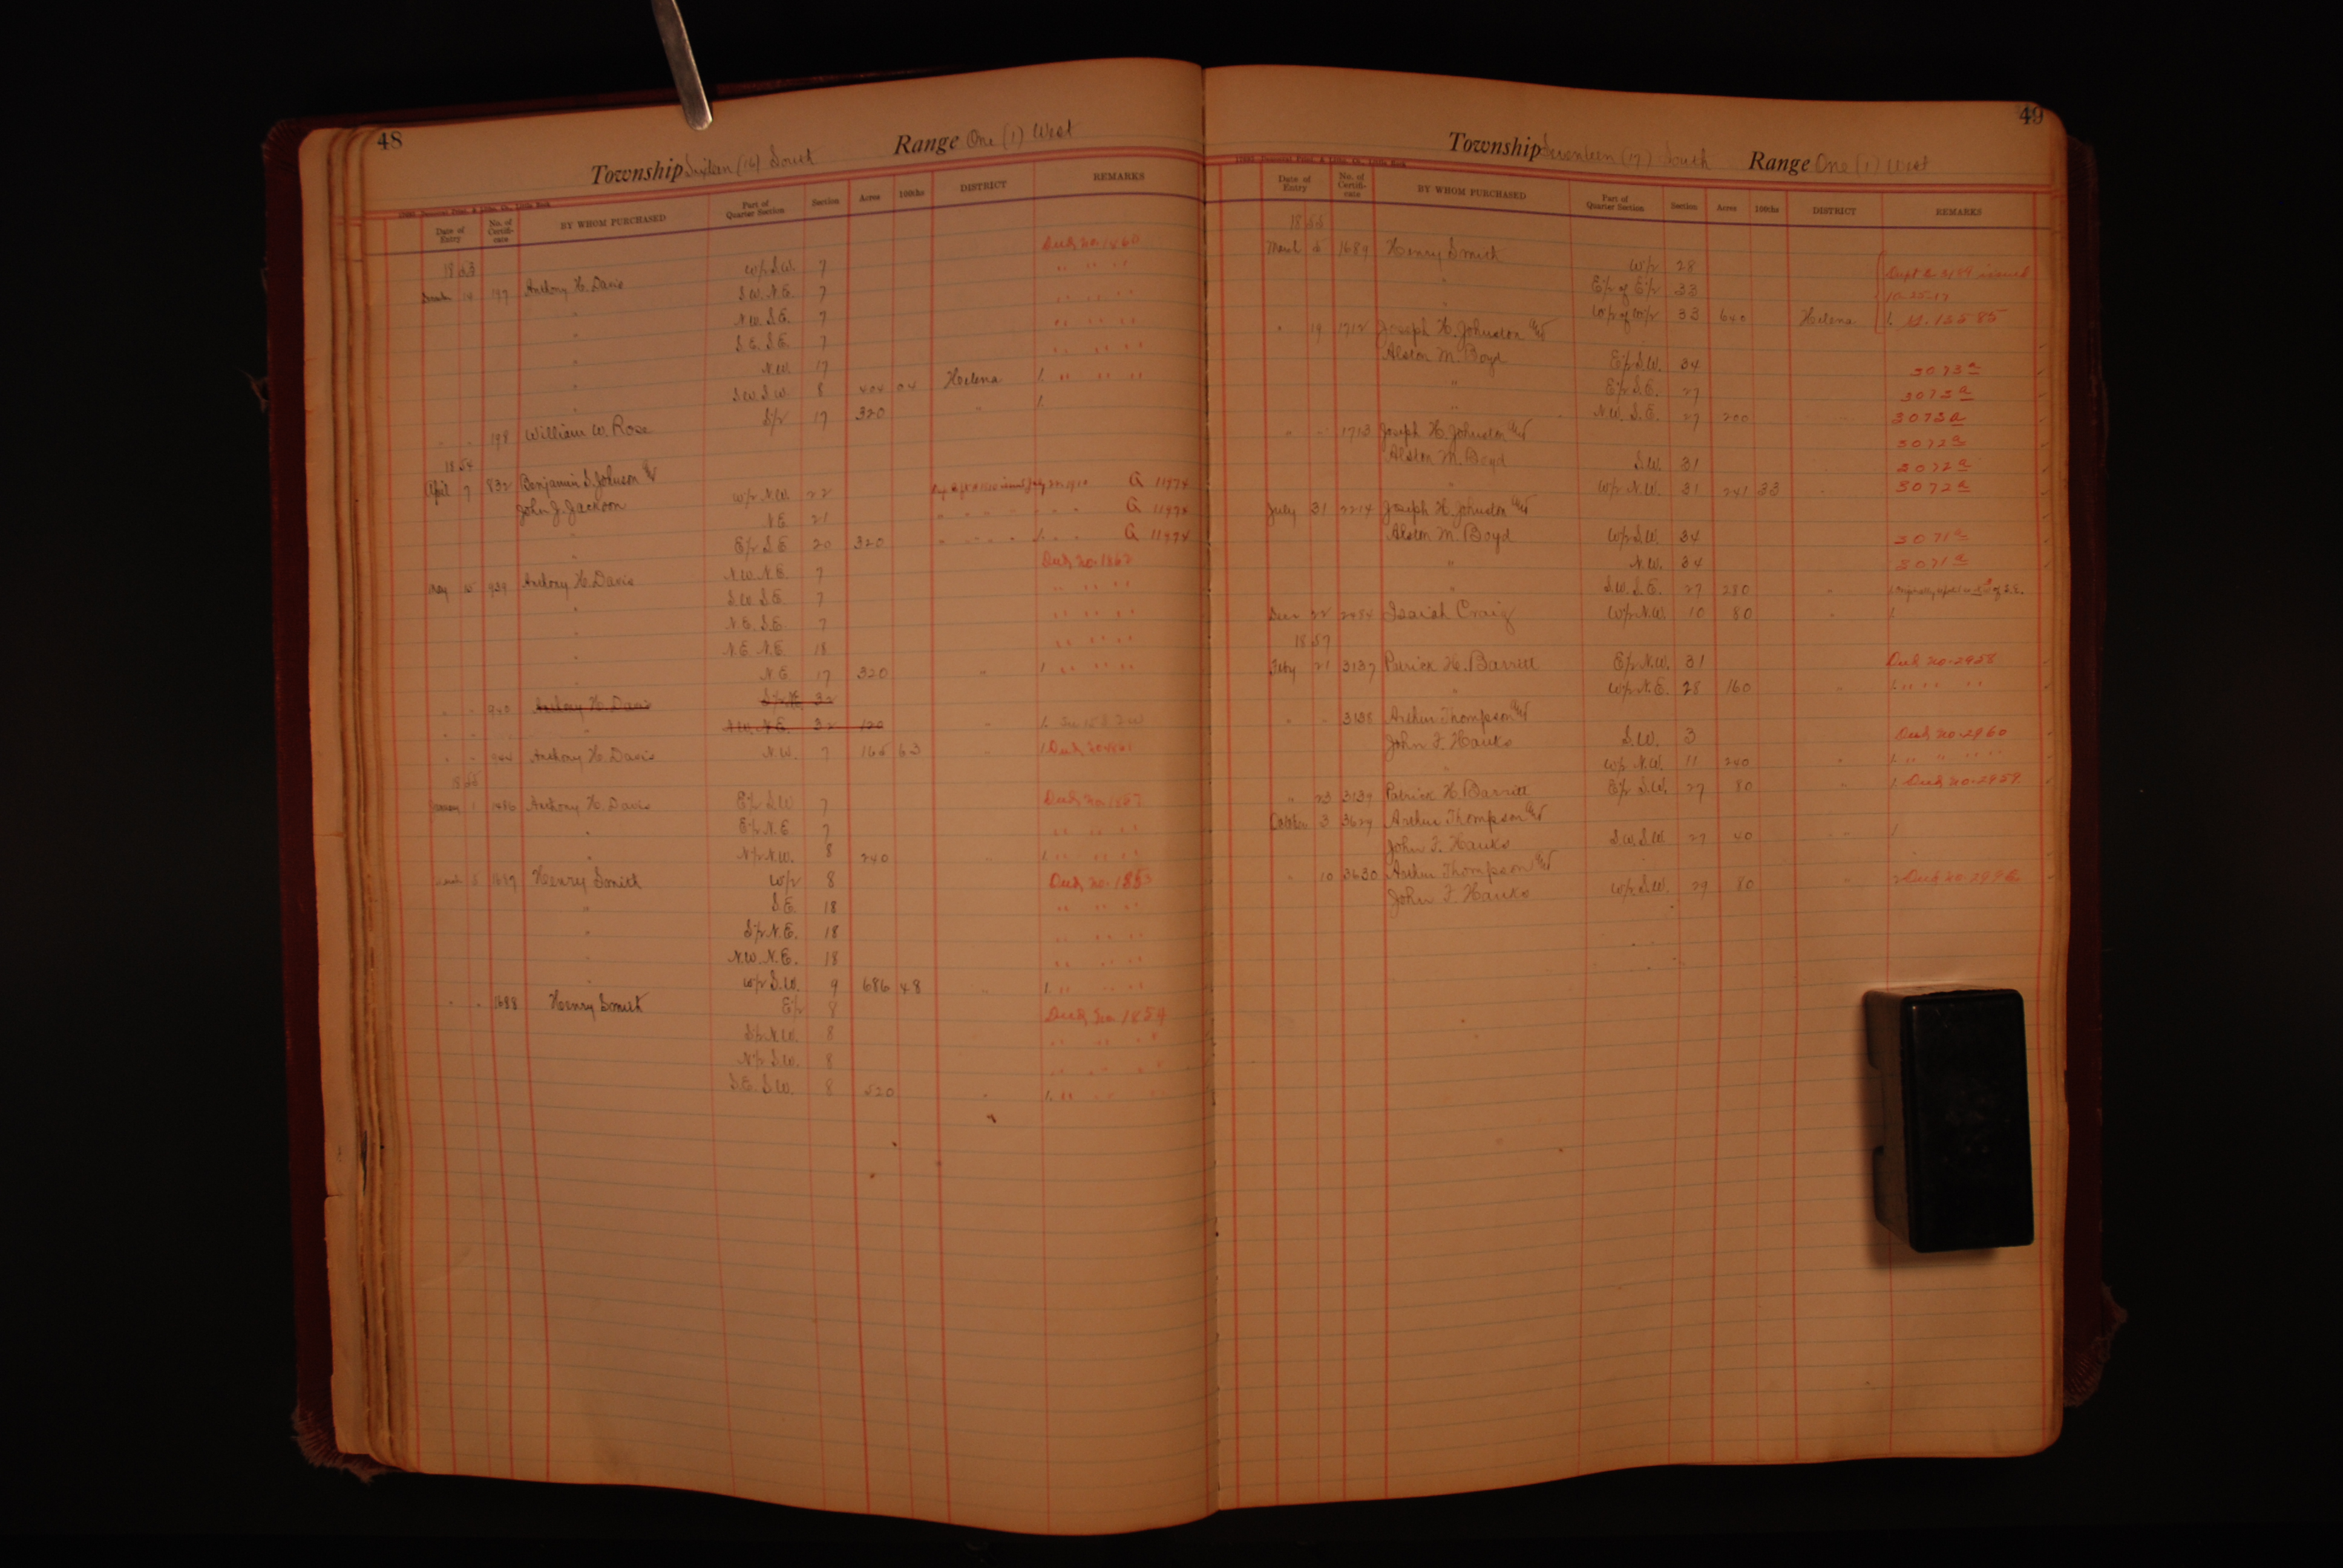 48
Township Sixteen (16) South Range One (1) West
Date of Entry No. of Certifi-cate BY WHOM PURCHASED Part of Quarter Section Section Acres 100ths DISTRICT REMARKS
1853
14 197 Anthony H. Davis W/2 S.W. 7
" S.W. N.E. 7 " " "
" N.W. S.E. 7 " " "
" S.E. S.E. 7 " " "
" N.W. 17 " " "
" S.W. S.W. 8 404 04 Helena 1. " " "
" " 198 William W. Rose S/2 17 320 " 1.
1854
April 7 832 Benjamin S. Johnson and
John J. Jackson W/2 N.W. 22 G 11474
" N.E. 21 " " " " " G 11474
" E/2 S.E. 20 320 " " " " " G 11474
May 15 939 Anthony H. Davis N.W. N.E. 7 Dup. no. 1862
" S.W. S.E. 7 " " "
" N.E. S.E. 7 " " "
" N.E. N.E. 18 " " "
" N.E. 17 320 " 1. " " "
" " 940 Anthony H. Davis 32
" " N.E. 32 120 " 1.
" " 944 Anthony H. Davis N.W. 7 165 63 " 1.
1855
January 1 1486 Anthony H. Davis E/2 S.W. 7
" E/2 N.E. 7 " " "
" N/2 N.W. 8 240 " 1. " " "
March 5 1687 Henry Smith W/2 8 Dup. no. 1853
" S.E. 18 " " "
" S/2 N.E. 18 " " "
" N.W. N.E. 18 " " "
" W/2 S.W. 9 686 48 " 1. " " "
" " 1688 Henry Smith E/2 8 Dup. no. 1854
S/2 N.W. 8 " " "
N/2 S.W. 8 " " "
S.E. S.W. 8 520 " 1. " " "
49
Township Seventeen (17) South Range One (1) West
Date of Entry No. of Certifi-cate BY WHOM PURCHASED Part of Quarter Section Section Acres 100ths DISTRICT REMARKS
1855
March 5 1689 Henry Smith W/2 28
" E/2 of E/2 33
" W/2 of W/2 33 640 Helena 1.
" 19 1712 Joseph H. Johnston and
Alston M. Boyd E/2 S.W. 34 3073a
" E/2 S.E. 27 3073a
" N.W. S.E. 27 200 3073a
" " 1713 Joseph H. Johnston and 3072a
Alston M. Boyd S.W. 31 3072a
" W/2 N.W. 31 241 33 " 3072a
July 31 2214 Joseph H. Johnston and
Alston M. Boyd W/2 S.W. 34 3071a
" N.W. 34 3071a
" S.W. S.E. 27 280 "
Decr 22 2494 Isaiah Craig W/2 N.W. 10 80 " 1.
1857
Feby 21 3137 Patrick H. Barrett E/2 N.W. 31 Dup. no. 2958
" W/2 N.E. 28 160 " 1. " " "
" " 3138 Arthur Thompson and
John F. Hanks S.W. 3 Dup. no. 2960
" W/2 N.W. 11 240 " 1. " " "
" 23 3139 Patrick H. Barritt E/2 S.W. 27 80 " 1. Dup. no. 2959
October 3 3629 Arthur Thompson and
John F. Hanks S.W. S.W. 27 40 " 1
" 10 3630 Arthur Thompson and
John F. Hanks W/2 S.W. 29 80 "